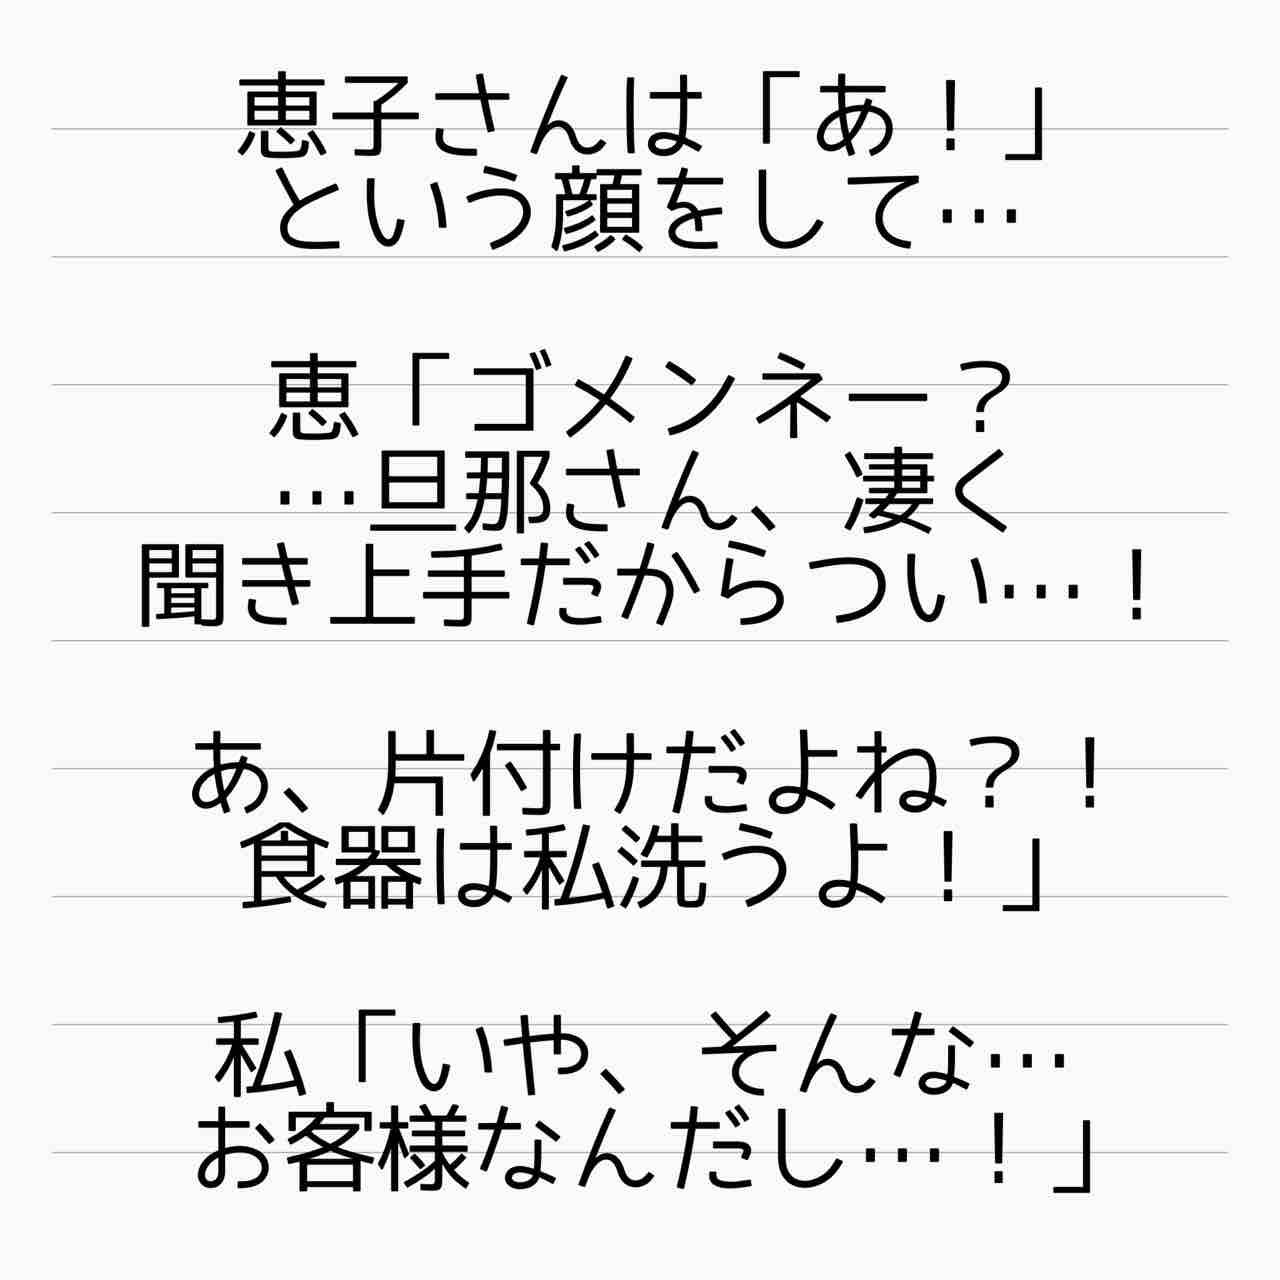 恵子さんは「あ！」
という顔をして…
恵「ゴメンネー？
…旦那さん、凄く
聞き上手だからつい…！
あ、片付けだよね？！
食器は私洗うよ！」
私「いや、そんな…
お客様なんだし…！」